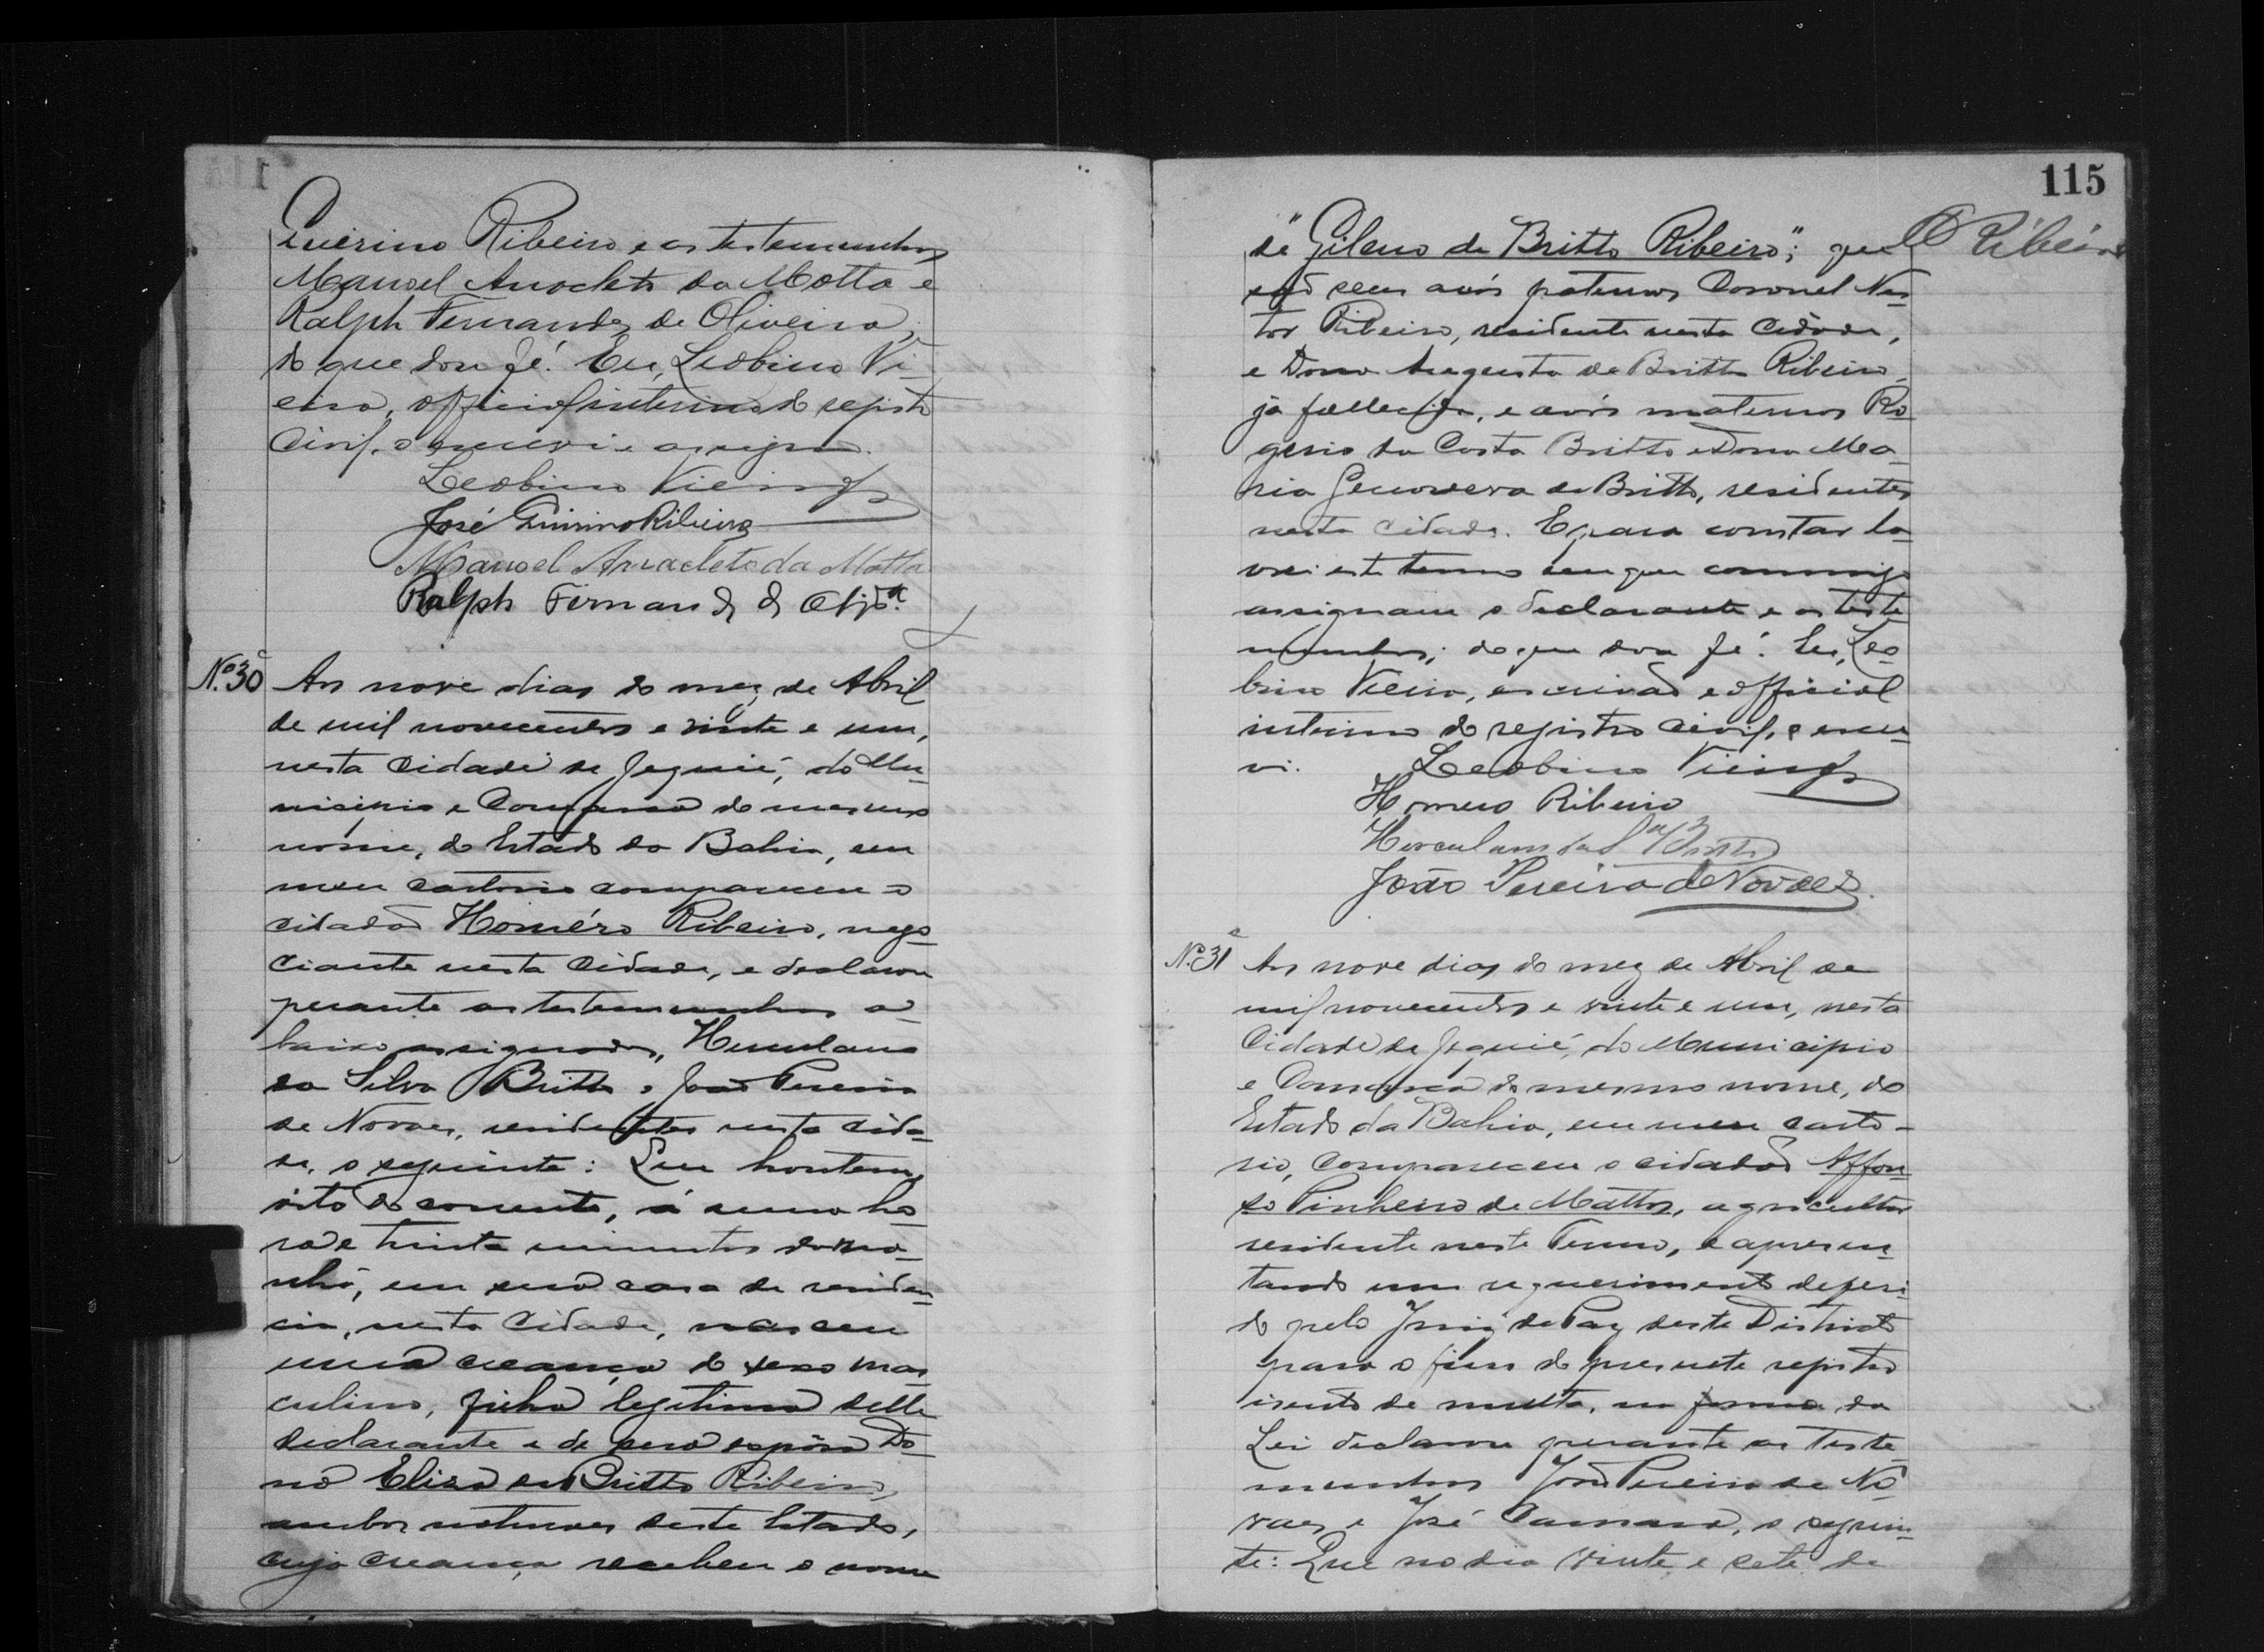 Quirino Ribeiro e as testemunhas
Manoel Anacleto da Motta e
Ralph Fernandes de Oliveira,
do que dou fé. Eu, Leobino Vi-
eira, official interino do registro
Civil, o escrevi e assigno.
Leobino Vieira
José Quirino Ribeiro
Manoel Anacleto da Motta
Ralph Fernand d
Nº 30 Aos nove dias do mez de Abril
de mil novecentos e vinte e um,
nesta Cidade de Jequié, do Mu-
nicipio e Comarca do mesmo
nome, do Estado da Bahia, em
meu cartorio compareceu o
cidadão Homéro Ribeiro, nego-
ciante nesta Cidade, e declarou
perante as testemunhas a-
baixo assignadas, Herculano
da Silva Britto e João Pereira
de Novaes, residentes nesta cida-
de, o seguinte: Que hontem,
oito do corrente, á uma ho-
ra e trinta minutos da ma-
nhã, em sua casa de residen-
cia, nesta Cidade, nasceu
uma creança do sexo mas-
culino, filha legitima delle
declarante e de sua espôsa Do-
na Elisa de Britto Ribeiro,
ambos naturaes deste Estado,
cuja creança recebeu o nome
115
de "Gileno de Britto Ribeiro"; que
são seus avós paternos Coronel Nes-
tor Ribeiro, residente nesta Cidade,
e Dona Augusta de Britto Ribeiro,
já fallecida, e avós maternos Ro-
gerio da Costa Britto e Dona Ma-
ria Genoveva de Britto, residentes
nesta cidade. E para constar la-
vrei este termo em que commigo
assignam o declarante e as teste-
munhas; do que dou fé. Eu, Leo-
bino Vieira, escrivão e official
interino do registro civil, o escre-
vi. Leobino Vieira
Homero Ribeiro
Herculano da Sª Britto
João Pereira de Novaes
Ribeiro
Nº 31 Aos nove dias do mez de Abril de
mil novecentos e vinte e um, nesta
Cidade de Jequié, do Municipio
e Comarca do mesmo nome, do
Estado da Bahia, em meu carto-
rio, compareceu o cidadão Affon-
so Pinheiro de Mattos, agricultor
residente neste Termo, e apresen-
tando um requerimento deferi-
do pelo Juiz de Paz deste Districto
para o fim do presente registro
isento de multa, na forma da
Lei declarou perante as teste-
munhas João Pereira de No-
vaes e José Camara, o seguin-
te: Que no dia vinte e sete de